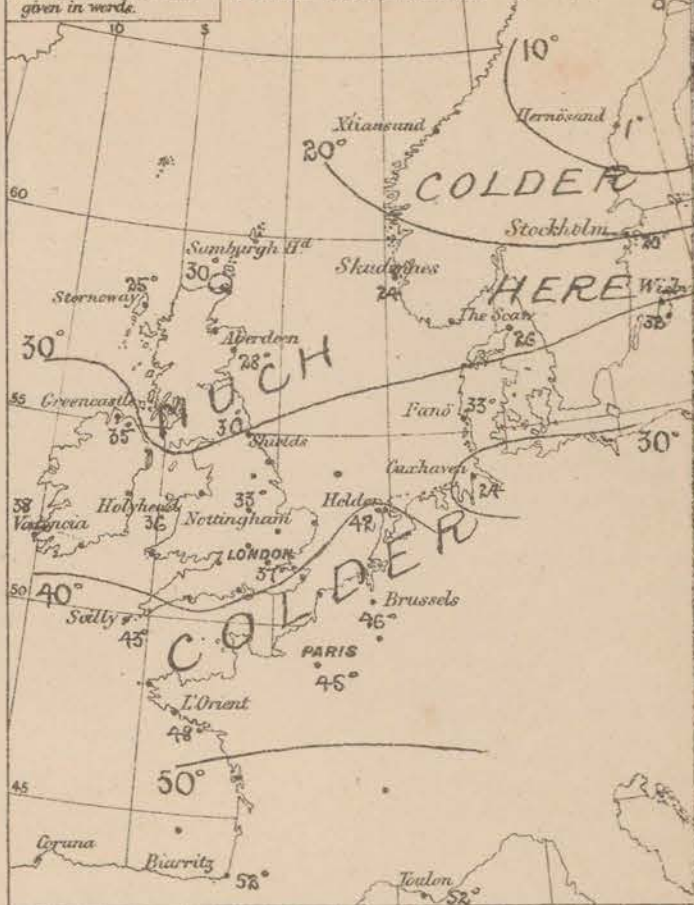 given in words.
10 5
10°
Xtiansund
Hernösand
1°
20°
COLDER
60
Stockholm
20°
Sumburgh Hd.
30°
Skudesnes
24°
HERE
Wisby
32°
25°
Stornoway
The Scaw
26
Aberdeen
28°
30°
MUCH
Greencastle
35°
55
30°
Shields
Fanö
33°
30°
Cuxhaven
24
38
Valencia
Holyhead
36
33°
Nottingham
Helder
42
LONDON
37°
COLDER
40°
50
Scilly
43°
Brussels
46°
PARIS
45°
L'Orient
48°
50°
45
Coruna
Biarritz
52°
Toulon
52°